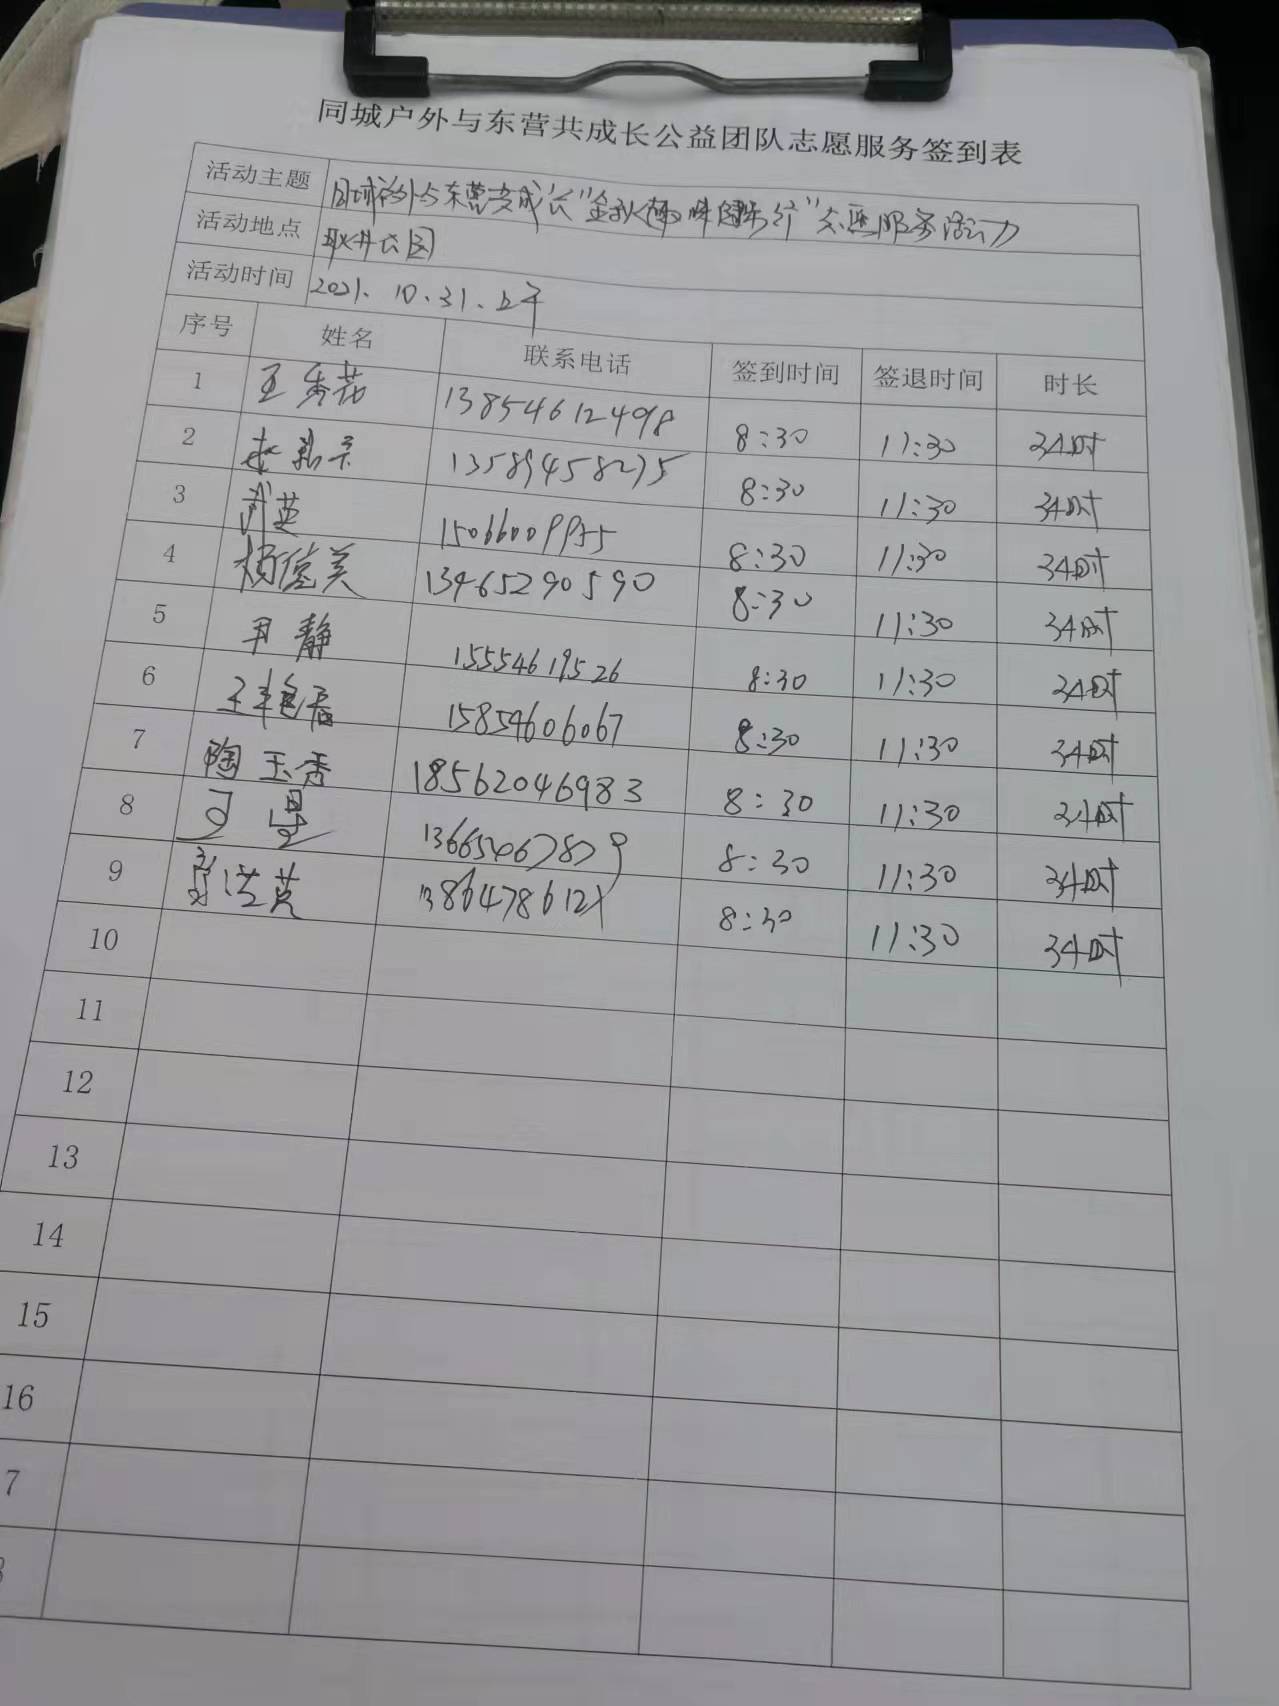 同城户外与东营共成长公益团队志愿服务签到表
活动主题 同城户外与东营共成长"金秋 健步行"志愿服务活动
活动地点 耿井公园
活动时间 2021.10.31.上午
序号 姓名 联系电话 签到时间 签退时间 时长
1 王秀花 13854612498 8:30 11:30 3小时
2 13589458275 8:30 11:30 3小时
3 武英 8:30 11:30 3小时
4 杨俊美 13465290590 8:30 11:30 3小时
5 尹静 15554619526 8:30 11:30 3小时
6 王艳春 15854606067 8:30 11:30 3小时
7 陶玉秀 18562046983 8:30 11:30 3小时
8 13665467879 8:30 11:30 3小时
9 8:30 11:30 3小时
10
11
12
13
14
15
16
7